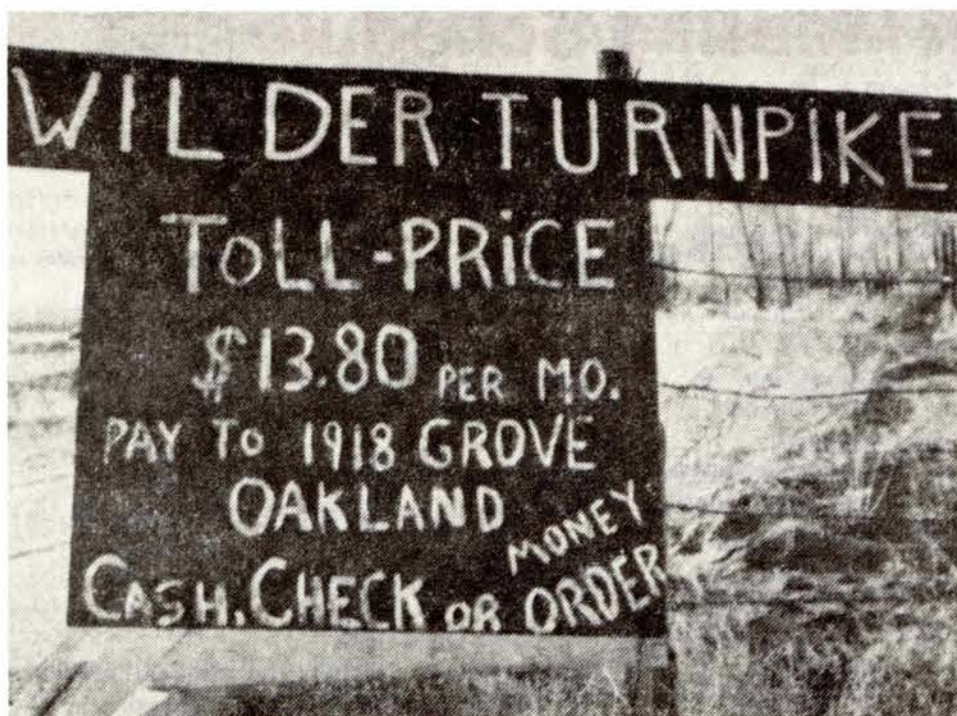 WILDER TURNPIKE
TOLL-PRICE
$13.80 PER MO.
PAY TO 1918 GROVE
OAKLAND
CASH, CHECK OR MONEY ORDER